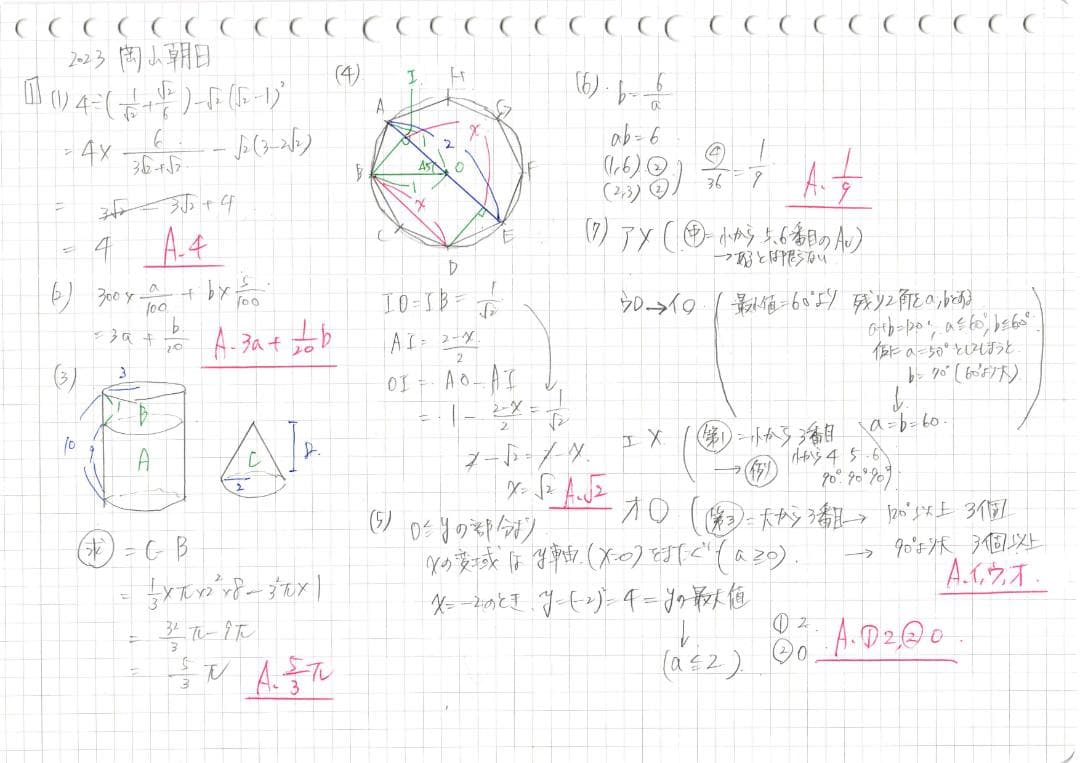 2023 岡山朝日
1
(1) 4÷(1/√2+√2/6)-√2(√2-1)²
=4×6/(3√2+√2)-√2(3-2√2)
= 3√2-3√2+4
= 4 A.4
(2) 300×a/100+b×5/100
=3a+b/20 A.3a+1/20b
(3)
3
1
B
10
9
A
C
8
2
求=C-B
=1/3×π×2²×8-3²π×1
=32/3π-9π
=5/3π A.5/3π
(4)
I
H
A
G
1
2
x
B
45
O
F
1
x
C
E
D
IO=IB=1/√2
AI=2-x/2
OI=AO-AI
=1-2-x/2=1/√2
2-√2=2-x
x=√2 A.√2
(5) 0≦yの部分より
xの変域はy軸(x=0)をまたぐ(a≧0)
x=-2のとき、y=(-2)²=4=yの最大値
(a≦2)
①2
②0
A.①2,②0
(6) b=6/a
ab=6
(1,6)②
(2,3)②
④/36=1/9
A.1/9
(7) ア×(中=小から5,6番目のAv)
→あるとは限らない
ウ○→イ○
最小値=60°より 残り2角をa,bとする
a+b=120°, a≦60°, b≦60°
仮に a=50°としてしまうと
b=70°(60°より大)
a=b=60.
エ×(第1=小から3番目
小から4 5 6
→例 90° 90° 90°)
オ○(第3=大から3番目→120°以上 3個
→90°より大 3個以上
A.イ,ウ,オ.